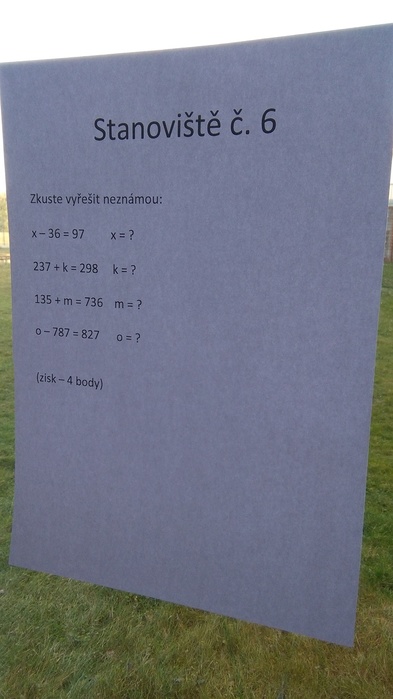 Stanoviště č. 6
Zkuste vyřešit neznámou:
x – 36 = 97 x = ?
237 + k = 298 k = ?
135 + m = 736 m = ?
o – 787 = 827 o = ?
(zisk – 4 body)